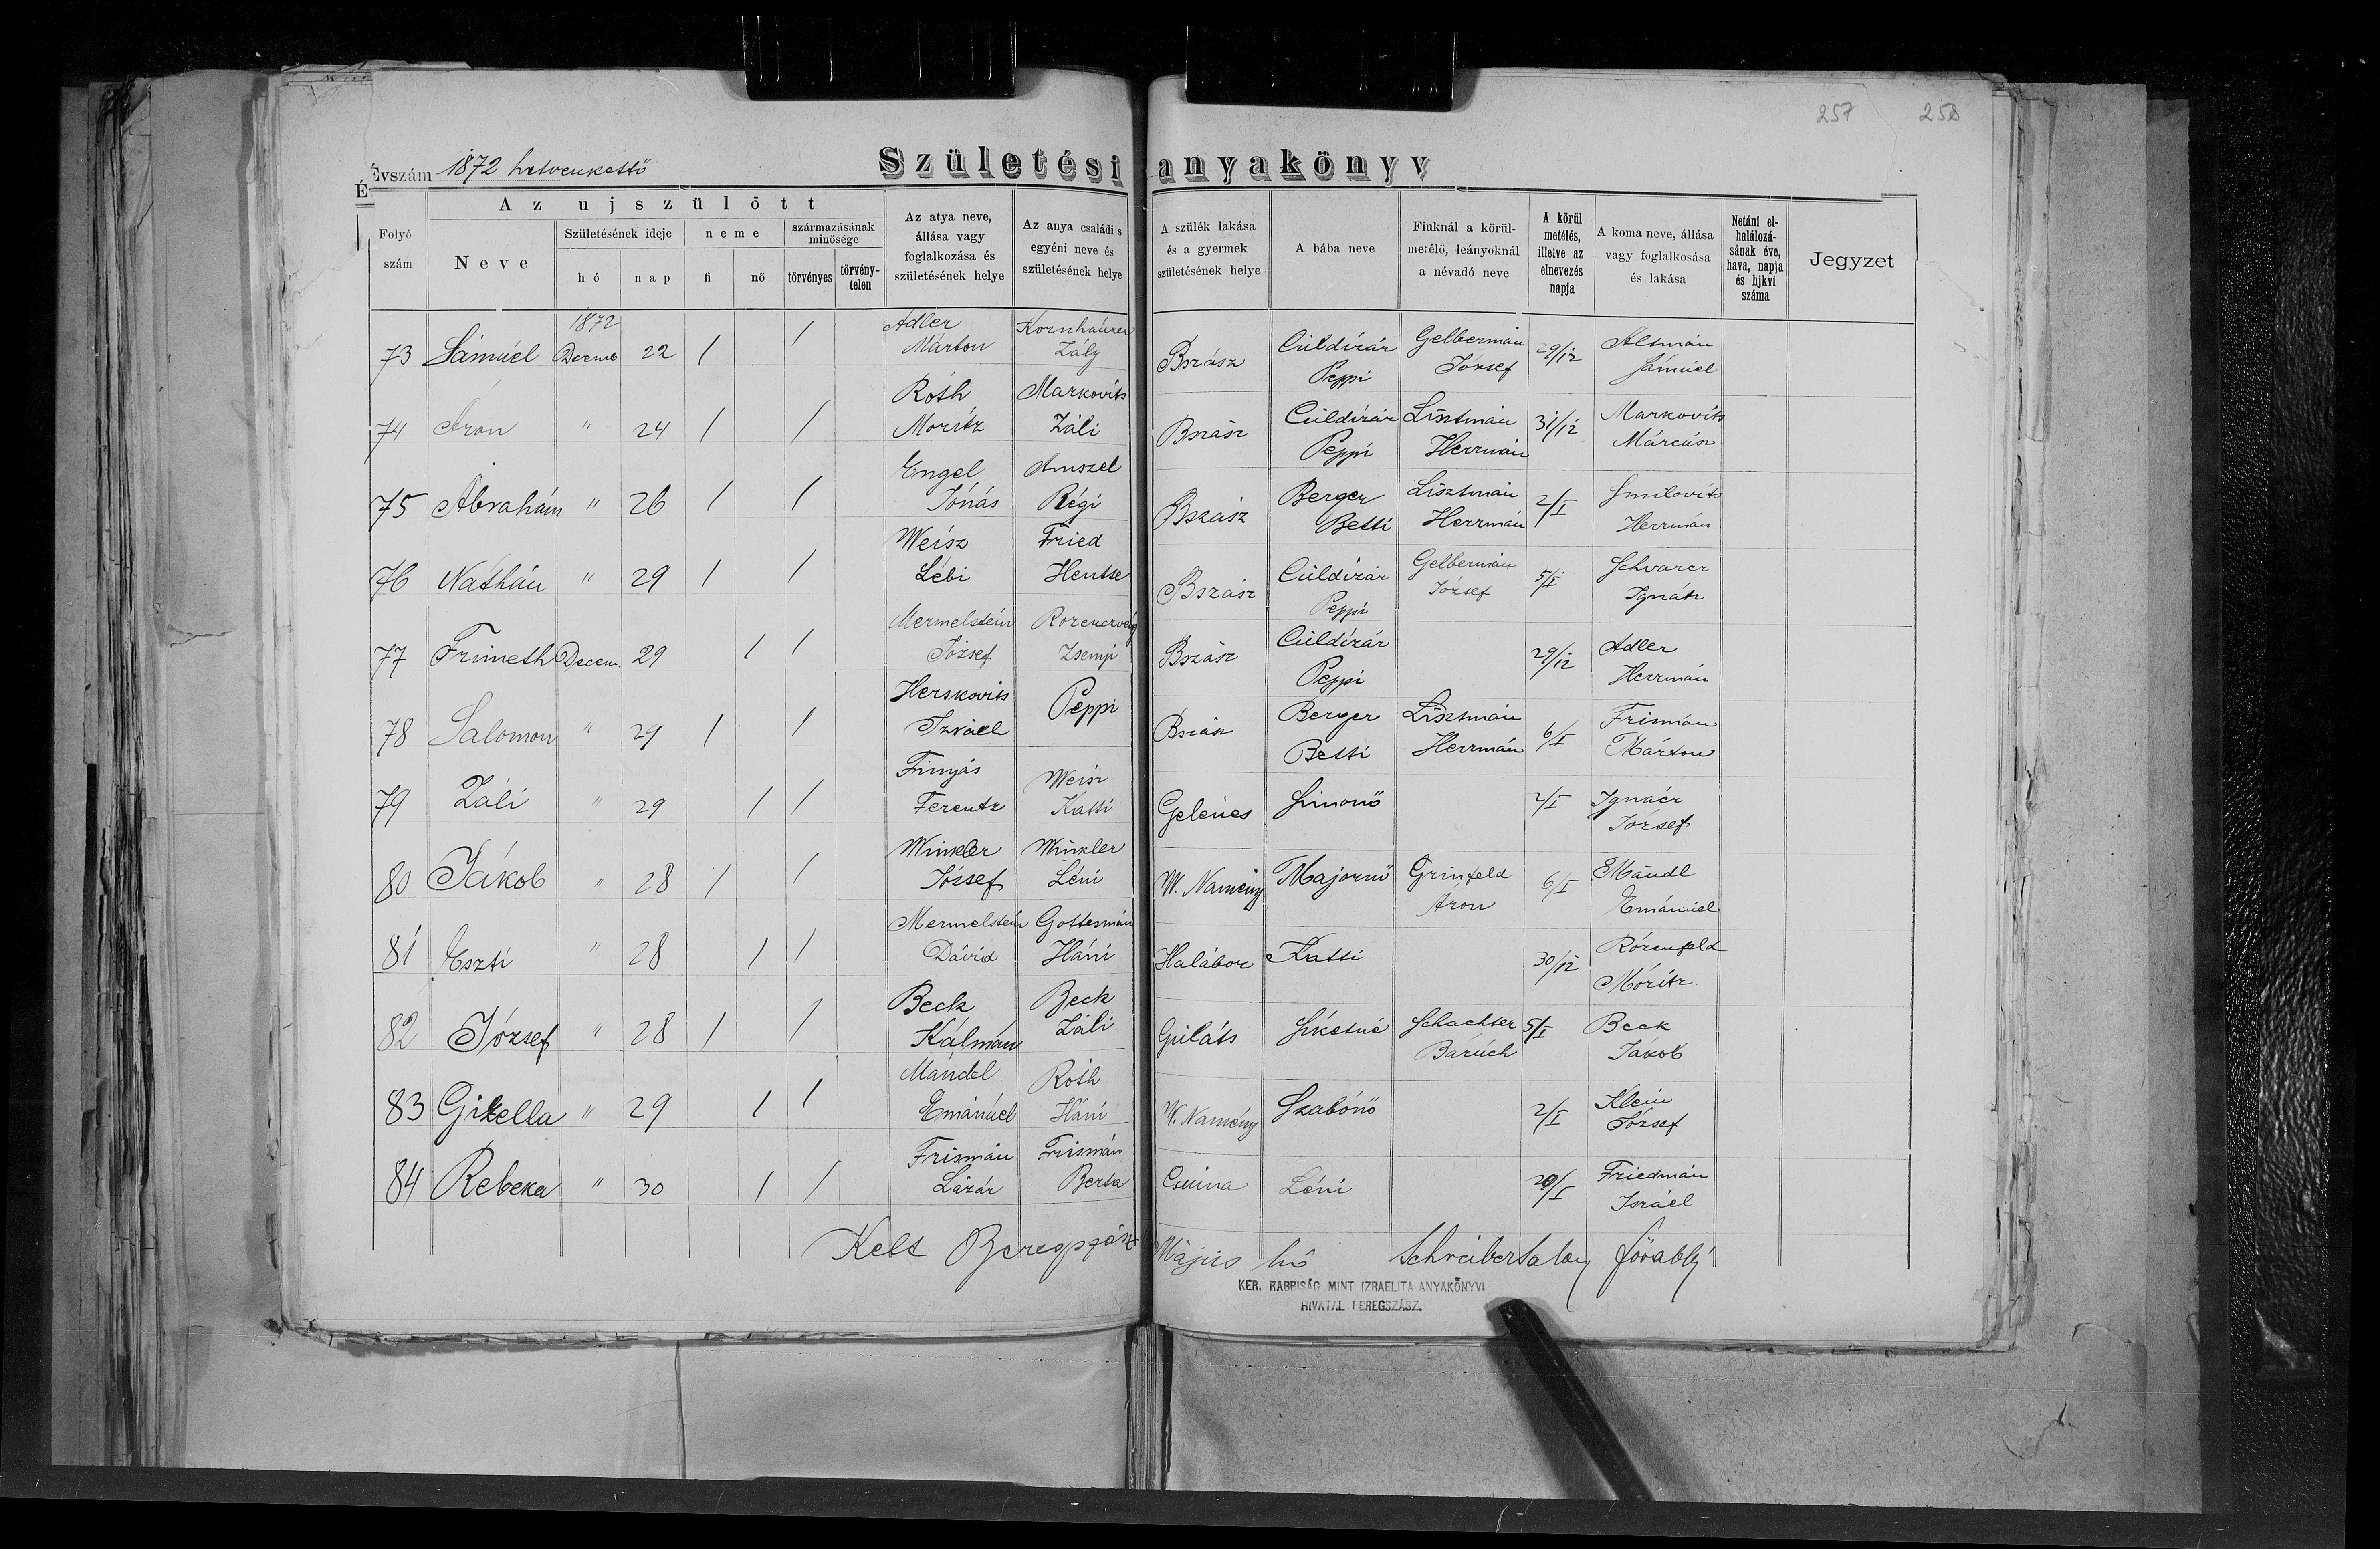 257 258
Évszám 1872 hetvenkettő
Születési anyakönyv
É
Folyó szám
Az ujszülött
Neve
Születésének ideje
hó
nap
neme
fi
nő
származásának minősége
törvényes
törvény-telen
Az atya neve, állása vagy foglalkozása és születésének helye
Az anya családi s egyéni neve és születésének helye
A szülék lakása és a gyermek születésének helye
A bába neve
Fiuknál a körül-metélő, leányoknál a névadó neve
A körül metélés, illetve az elnevezés napja
A koma neve, állása vagy foglalkosása és lakása
Netáni el-halálozá-sának éve, hava, napja és hjkvi száma
Jegyzet
1872
73 Sámúel Decemb 22 / / Adler Márton Kornhaúzer Zály Bszász Cúldizár Peppi Gelbermán József 29/12 Altmán Sámúel
74 Áron " 24 / / Róth Moritz Markovits Záli Bszász Cúldizár Peppi Lisztmán Herrmán 31/12 Markovits Márcúsz
75 Ábrahám " 26 / / Engel Jónás Amszel Régi Bszász Berger Betti Lisztmán Herrmán 2/I Smilovits Herrmán
76 Nathán " 29 / / Weisz Lébi Fried Hentse Bszász Cúldizár Peppi Gelbermán József 5/I Schvarcz Ignátz
77 Frimeth Decem. 29 / / Mermelstein József Rozenczveig Zsemji Bszász Cúldizár Peppi 29/12 Adler Herrmán
78 Salomon " 29 / / Herskovits Izráel Peppi Bszász Berger Betti Lisztmán Herrmán 6/I Frismán Márton
79 Záli " 29 / / Ferentz Weisz Katti Gelénes Simonő 2/I Ignácz József
80 Jákob " 28 / / Winkler József Winkler Léni W. Namény Majornő Grinfeld Áron 6/I Mándl Emánúel
81 Eszti " 28 / / Mermelstein Dávid Gottesmán Háni Halábor Katti 30/12 Rózenfeld Móritz
82 József " 28 / / Beck Kálmán Beck Záli Guláts Schachter Barúch 5/I Beck Jákob
83 Gizella " 29 / / Mándel Emánúel Róth Háni W. Namény Szabónő 2/I Klein József
84 Rebeka " 30 / / Frismán Lázár Frismán Berta Csuma Léni 20/I Friedmán Israél
Kelt Beregszász Május hó Schreiber Salamon főrabbi
KER. RABBISÁG MINT IZRAELITA ANYAKÖNYVI
HIVATAL BEREGSZÁSZ.